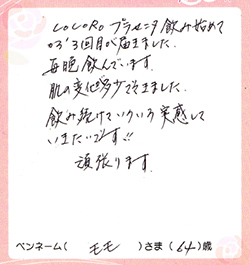 LOCORO プラセンタ 飲み始めて
03'3回目が届きました.
毎晩 飲んでいます.
肌の変化が多少でてきました.
飲み続けていろいろ実感して
いきたいです!!
頑張ります.
ペンネーム( モモ )さま(64)歳